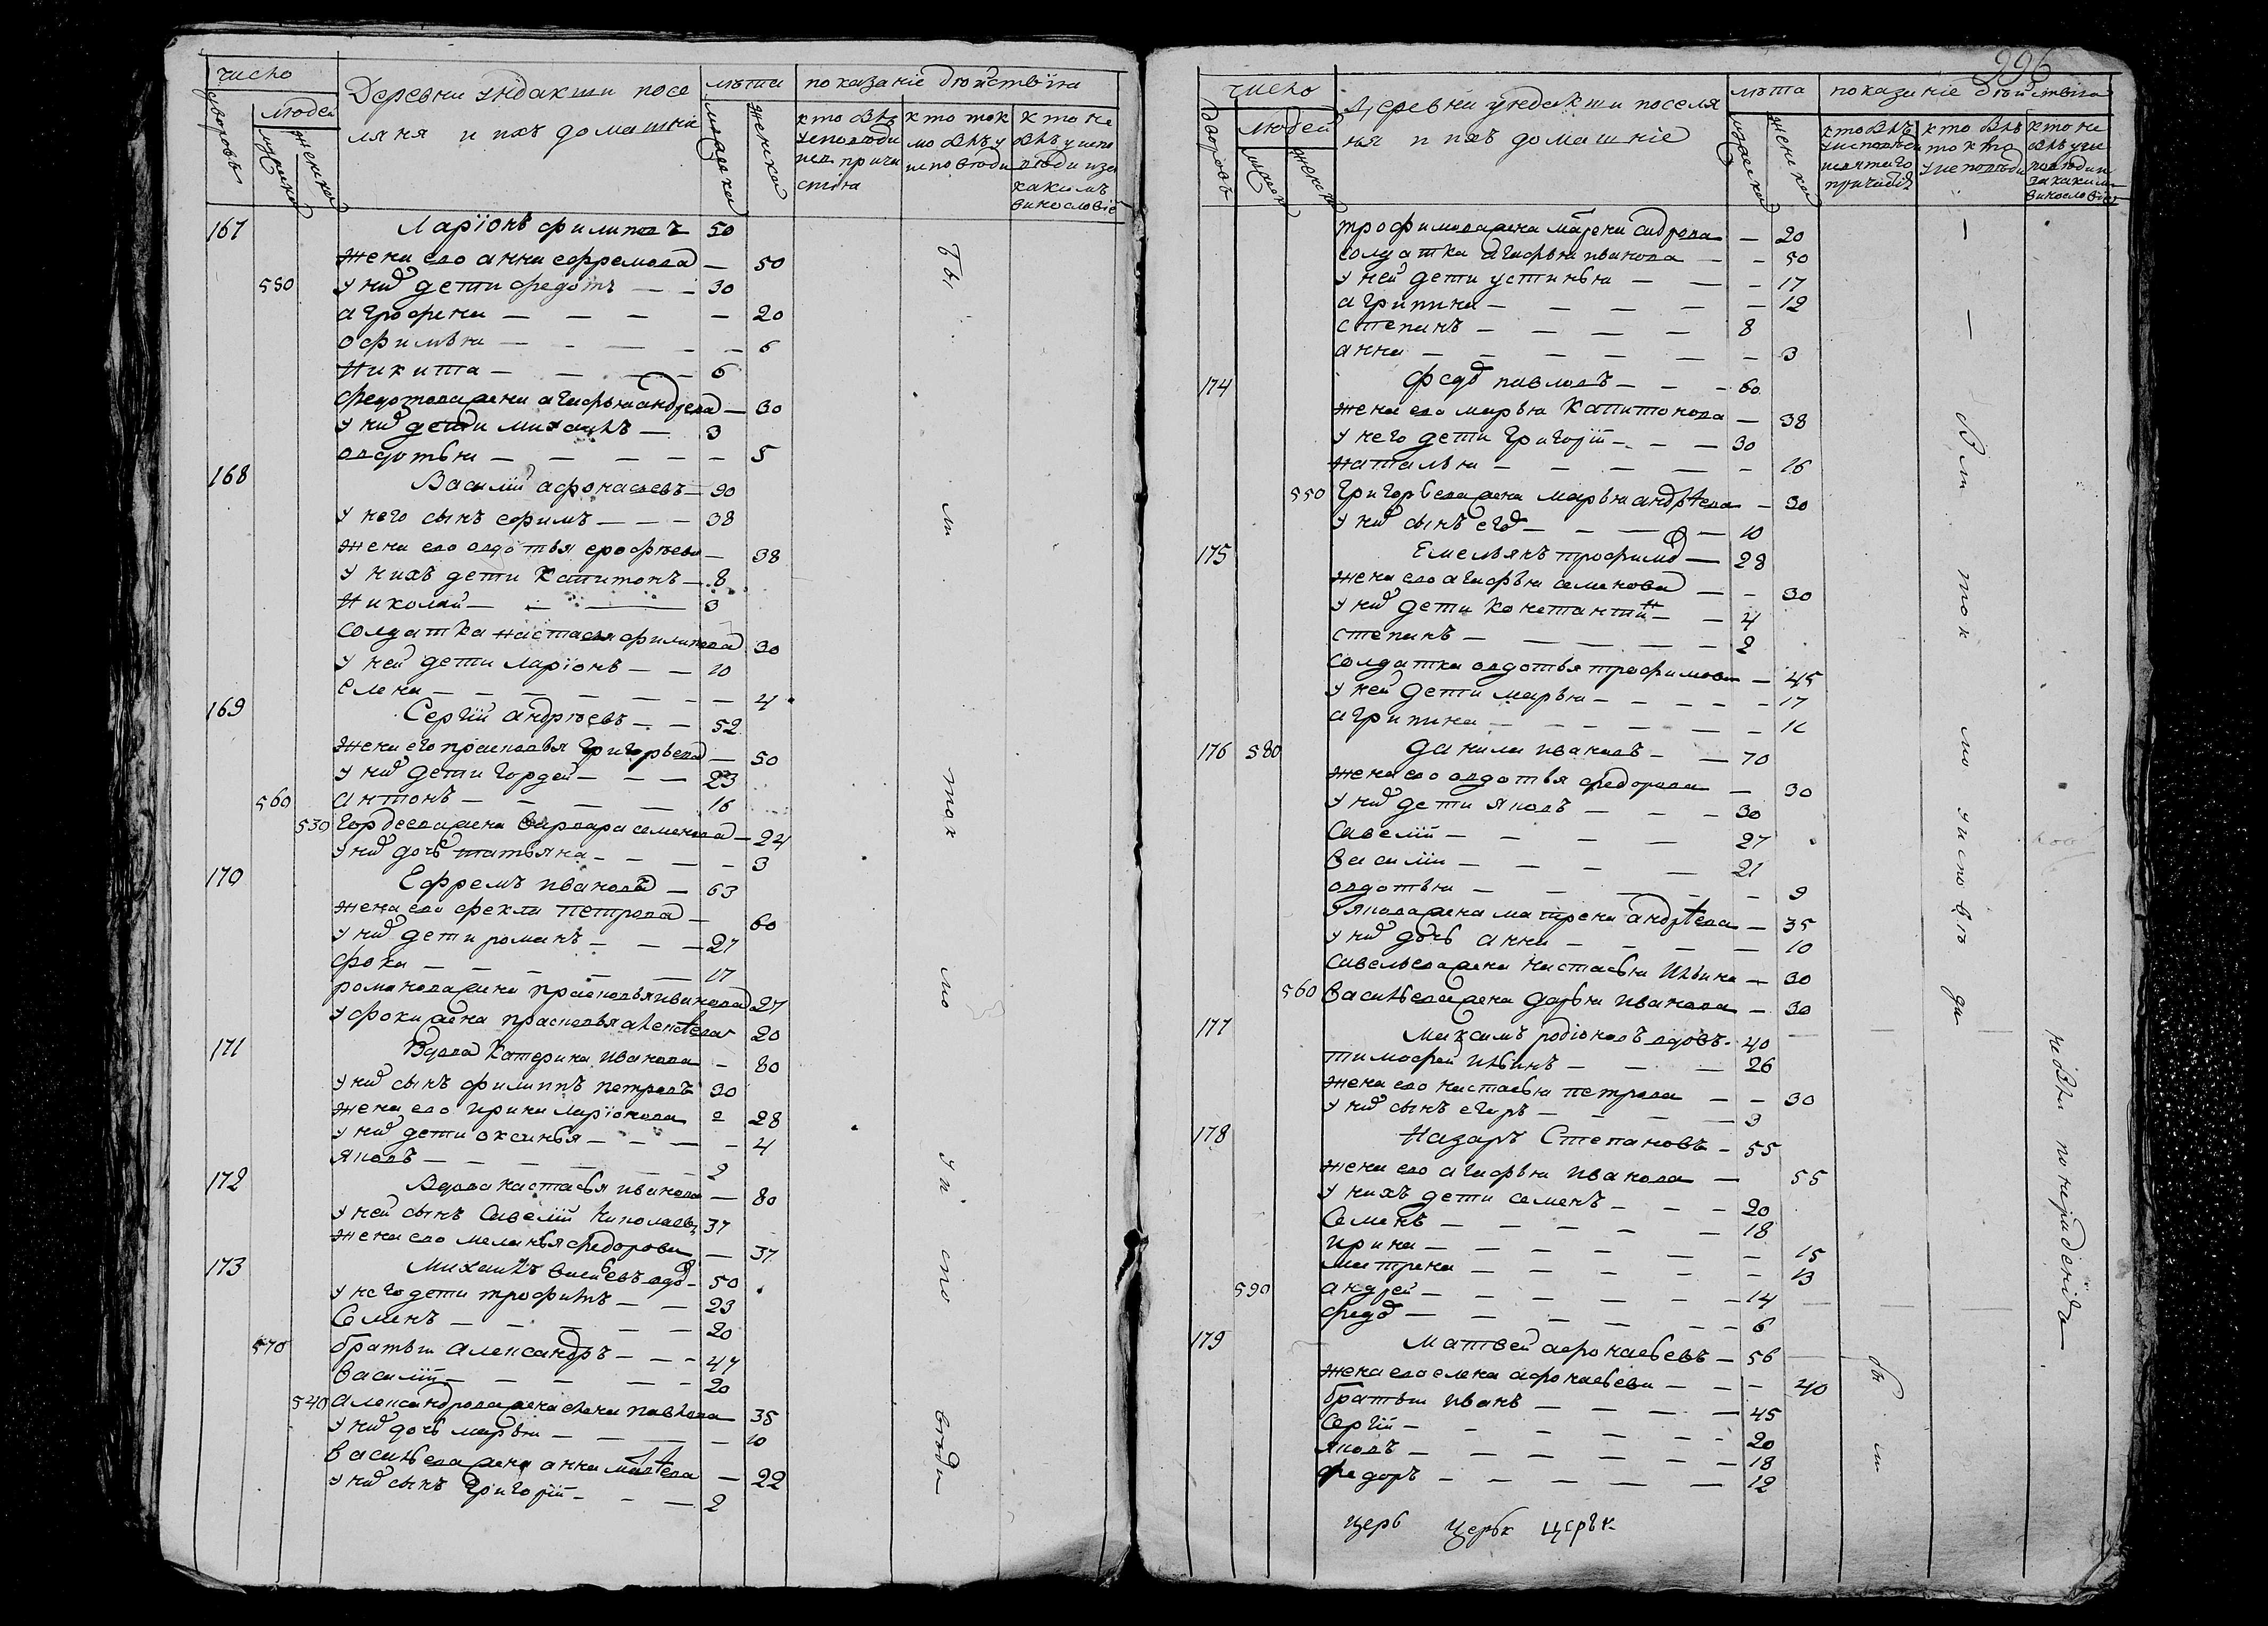 число
Деревни ундакти посе
лѧня и ихъ домашніе
лѣта
показаніе дѣйствіѧ
дворовъ
людей
мужска
женска
мужеска
женска
кто былъ
кто ток
мо былъ у
исповѣди
кто не
167 Ларіонъ филиповъ 50
жена ево анна ефремова — 50
550 у них дети федотъ — — 30
агрофена — — — — 20
офимья — — — — 6
Никита — — — — 6
федотова жена агафья андреева — 30
у них дети михаилъ — 3
овдотья — — — — — 5
168 Василій афонасьевъ — 90
у него сынъ ефимъ — — — 38
жена ево овдотья ерофѣева — 38
у нихъ дети капитонъ — 8
Николай — — — 3
солдатка настасья филипова 30
у ней дети ларіонъ — — 10
елена — — — — — — 4
169 Сергій андрѣевъ — — 52
жена его прасковья григорьева — 50
у них дети гордей — — — 23
560 антонъ — — — — 16
530 гордеева жена варвара семенова — 24
у них дочь татьяна — — — — 3
170 Ефремъ иванов — 63
жена ево фекла петрова — 60
у них дети романъ — — — 27
фока — — — — — 17
романова жена прасковья иванова 27
у фоки жена прасковья алексѣева 20
171 Вдова катерина иванова — 80
у них сынъ филиппъ петровъ 30
жена ево ирина ларіонова 28
у них дети оксинья — — — — 4
яковъ — — — — — — 2
172 Вдова настасья иванова — 80
у ней сынъ савелій николаевъ 37
жена ево маланья федорова — 37
173 Михаилъ васильевъ вдов — 50
у него дети трофимъ — — 23
Семенъ — — — — — 20
570 братья александръ — — — 47
василій — — — — — 20
540 александрова жена елена павлова 35
у них дочь марья — — — — 10
васильева жена анна матѣева — 22
у них сынъ григорій — — — 2
бы ли ток мо у и спо вѣди
996
число
Деревни ундакти поселѧ
нѧ и ихъ домашніе
лѣта
показаніе дѣйствіѧ
дворовъ
людей
мужеска
женска
мужеска
женска
трофимова жена матрена сидрова — 20
солдатка агафья иванова — — 50
у ней дети устинья — — — 17
агрипина — — — — — 12
степанъ — — — — — 8
анна — — — — — — 3
174 федо павловъ — — — 60
жена ево марья капитонова — 38
у него дети григорій — — — 30
наталья — — — — — 16
550 григорьева жена марья андрѣева — 30
у них сынъ его — — — — 10
175 Емельянъ трофимо — 28
жена ево агафья семенова — — 30
у них дети константин — — 4
степанъ — — — — — 2
солдатка овдотья трофимова — 45
у ней дети марья — — — — — 17
агрипина — — — — — —
176 580 данила ивановъ — — 70
жена ево овдотья федорова — 30
у них дети яковъ — — — 30
савелій — — — — 27
василій — — — — 21
овдотья — — — — — 9
у якова жена матрена андрѣева — 35
у них дочь анна — — — — 10
савельева жена настасья ильина — 30
560 васильева жена дарья иванова — 30
177 Максимъ родіоновъ вдовъ — 40
тимофей ильинъ — — — 26
жена ево настасья петрова — — 30
у них сынъ егоръ — — — — 3
178 Назаръ Степановъ — 55
жена ево агафья иванова — 55
у нихъ дети семенъ — — — 20
Семенъ — — — — — 18
ирина — — — — — — 15
матрена — — — — — — 13
590 андрей — — — — — — 14
федо — — — — — — 6
179 Матвей афонасьевъ — 56
жена ево елена афонасьева — — — 40
братья иванъ — — — — — 45
Сергій — — — — — — 20
яковъ — — — — — — 18
федоръ — — — — — — 12
церв церьк церьк
были ток мо у исповѣ ди
не были по нерадѣнію
бы ли